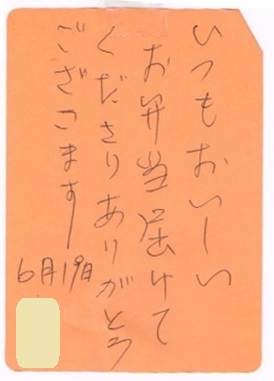 いつもおいしい
お弁当届けて
くださりありがとう
ございます
6月19日